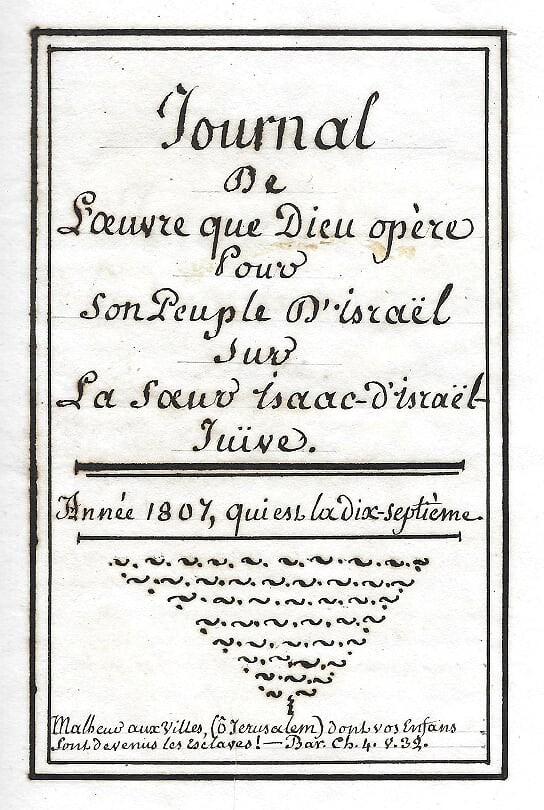 Journal
De
L'œuvre que Dieu opère
Pour
Son Peuple D'israël
Sur
La Sœur isaac-D'israël-
Juïve.
Année 1807, qui est la dix-septième.
Malheur aux Villes, (ô Jerusalem) dont vos Enfans
Sont devenus les Esclaves! — Bar. Ch. 4. v. 32.